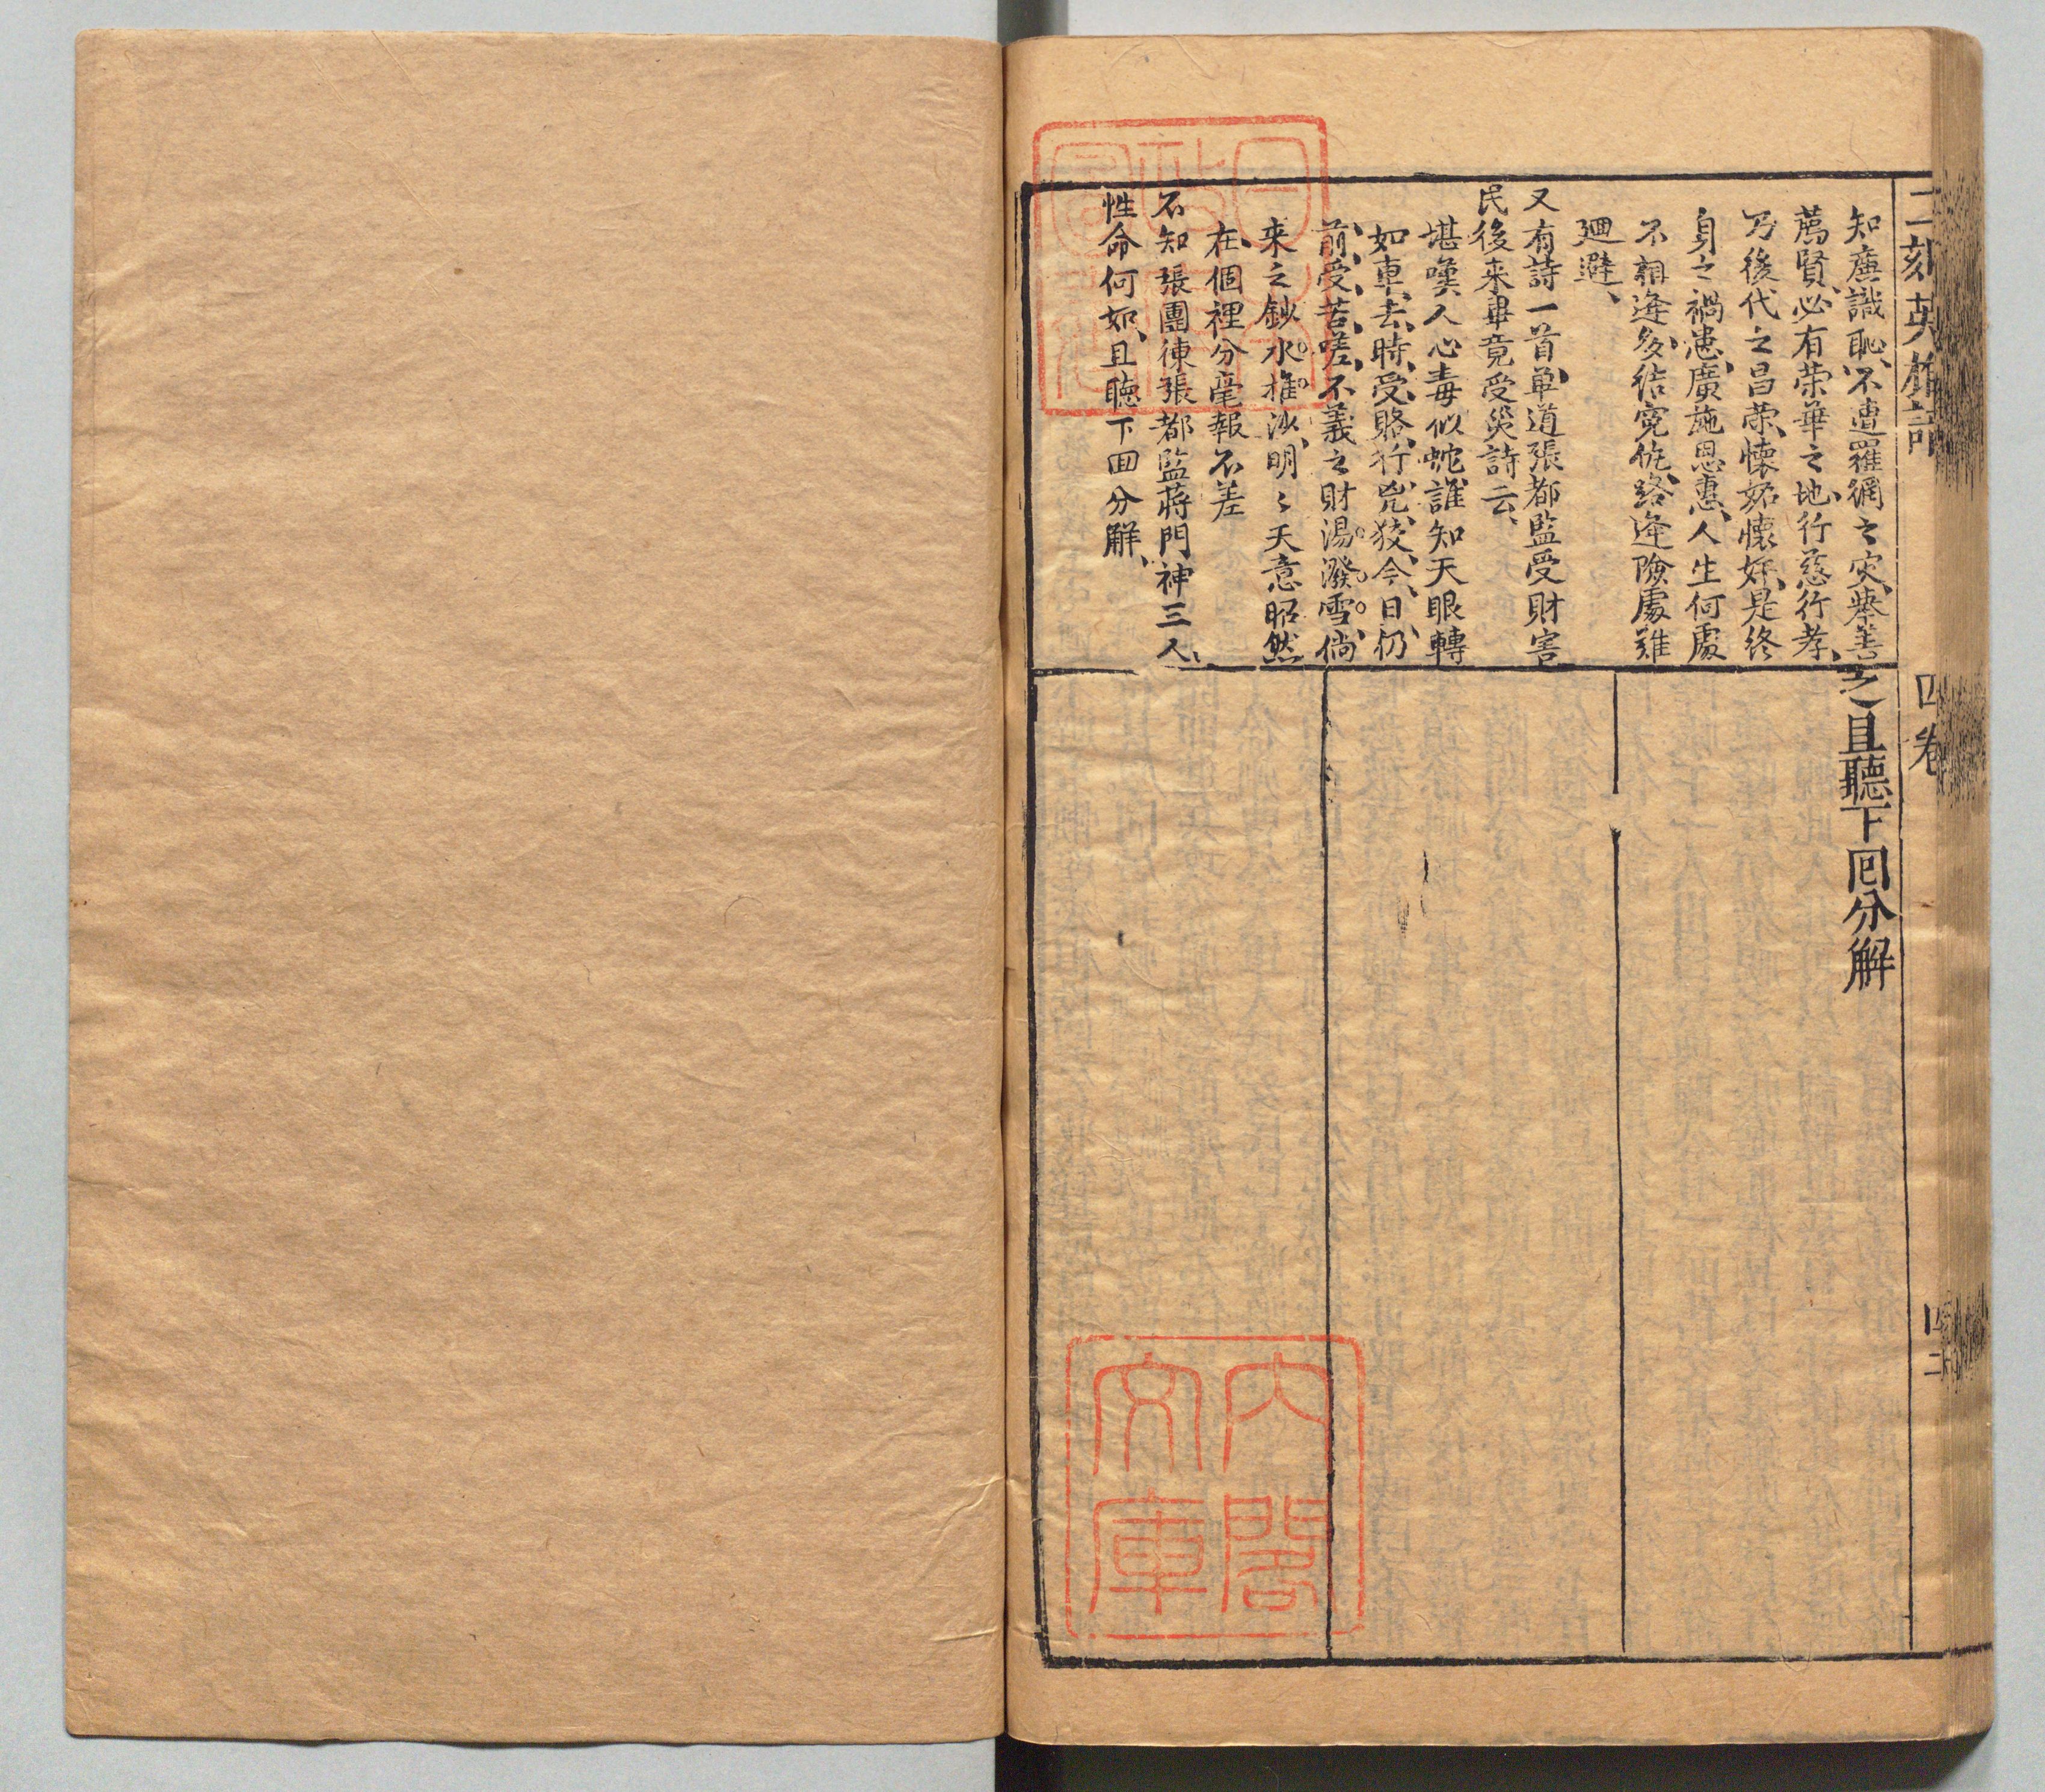 二刻英雄譜
四卷
四二
知廉識恥、不遭羅網之灾、舉善
薦賢、必有荣華之地、行慈行孝、
乃後代之昌荣、懐妬懐奸、是终
身之禍患、廣施恩惠、人生何處
不相逢、多结寃仇、路逢險處难
廻避、
又有詩一首、单道張都监受財害
民後来畢竟受災詩云、
堪嘆人心毒似蛇誰知天眼轉
如車、去時受賂行兇狡、今日仍
前受苦嗟、不義之財湯潑雪、倘
来之鈔水推沙、明〻天意昭然
在個裡分毫報不差
不知張團練張都监蔣門神三人、
性命何如、且聽下囬分解、
之且聽下囘分解
日本
政府
圖書
內閣
文庫